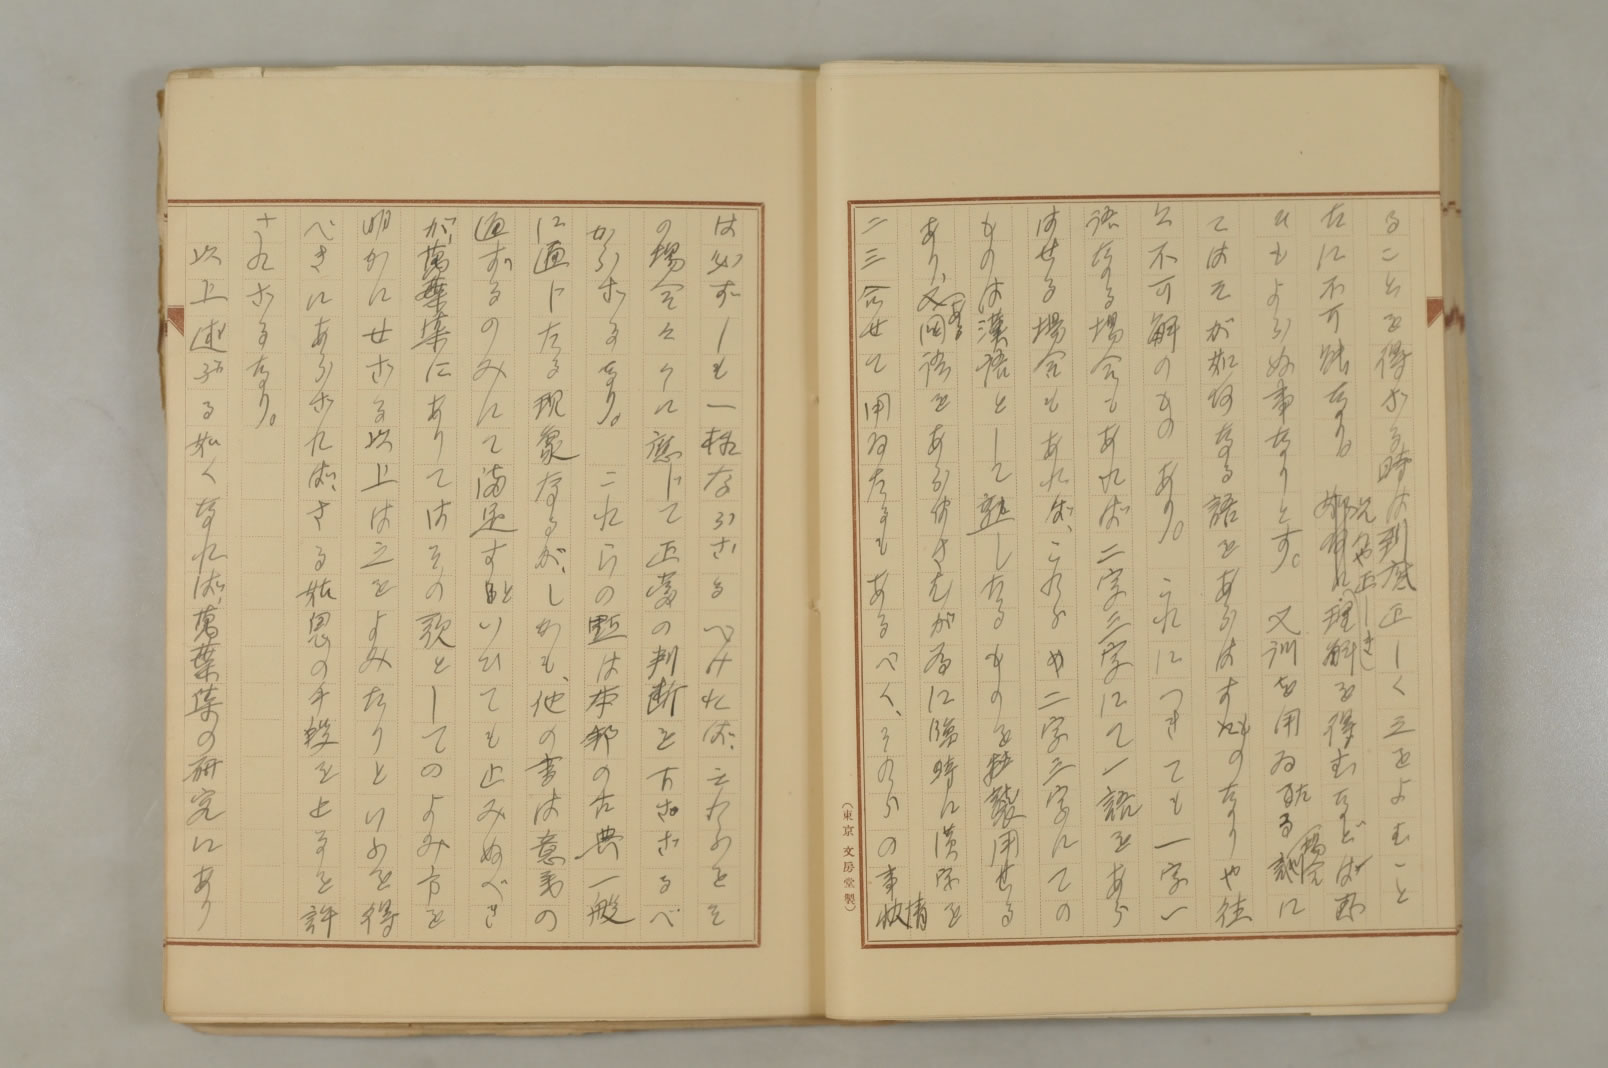 ることを得ざる時は到底正しく之をよむこと
は不可能なり。況んや正しき理解を得むなどは夢
にもよらぬ事なりとす。又訓を用ゐたる場合に
てはそが如何なる語をあらはすものなりや往
々不可解のものあり。これにつきても一字一
語なる場合もあれば二字三字にて一語をあら
はせる場合もあれば、これら二字三字にての
ものは漢語として熟したるものを転襲用せる
あり、又国語をあらはさむが為に臨時に漢字を
二三合せて用ゐたるもあるべく、それらの事情
は必ずしも一様ならざるべければ、之れらをそ
の場合々々に應じて正當の判断を下さざるべ
からざるなり。これらの點は本邦の古典一般
に通じたる現象なるが、しかも、他の書は意義の
通ずるのみにて満足すといひても止みぬべき
が、萬葉集にありてはその歌としてのよみ方を
明かにせざる以上は之をよみたりといふを得
べきにあらざれば、さる姑息の手段を止るを許
さざるなり。
以上述ぶる如くなれば、萬葉集の研究にあり
(東京 文房堂製)